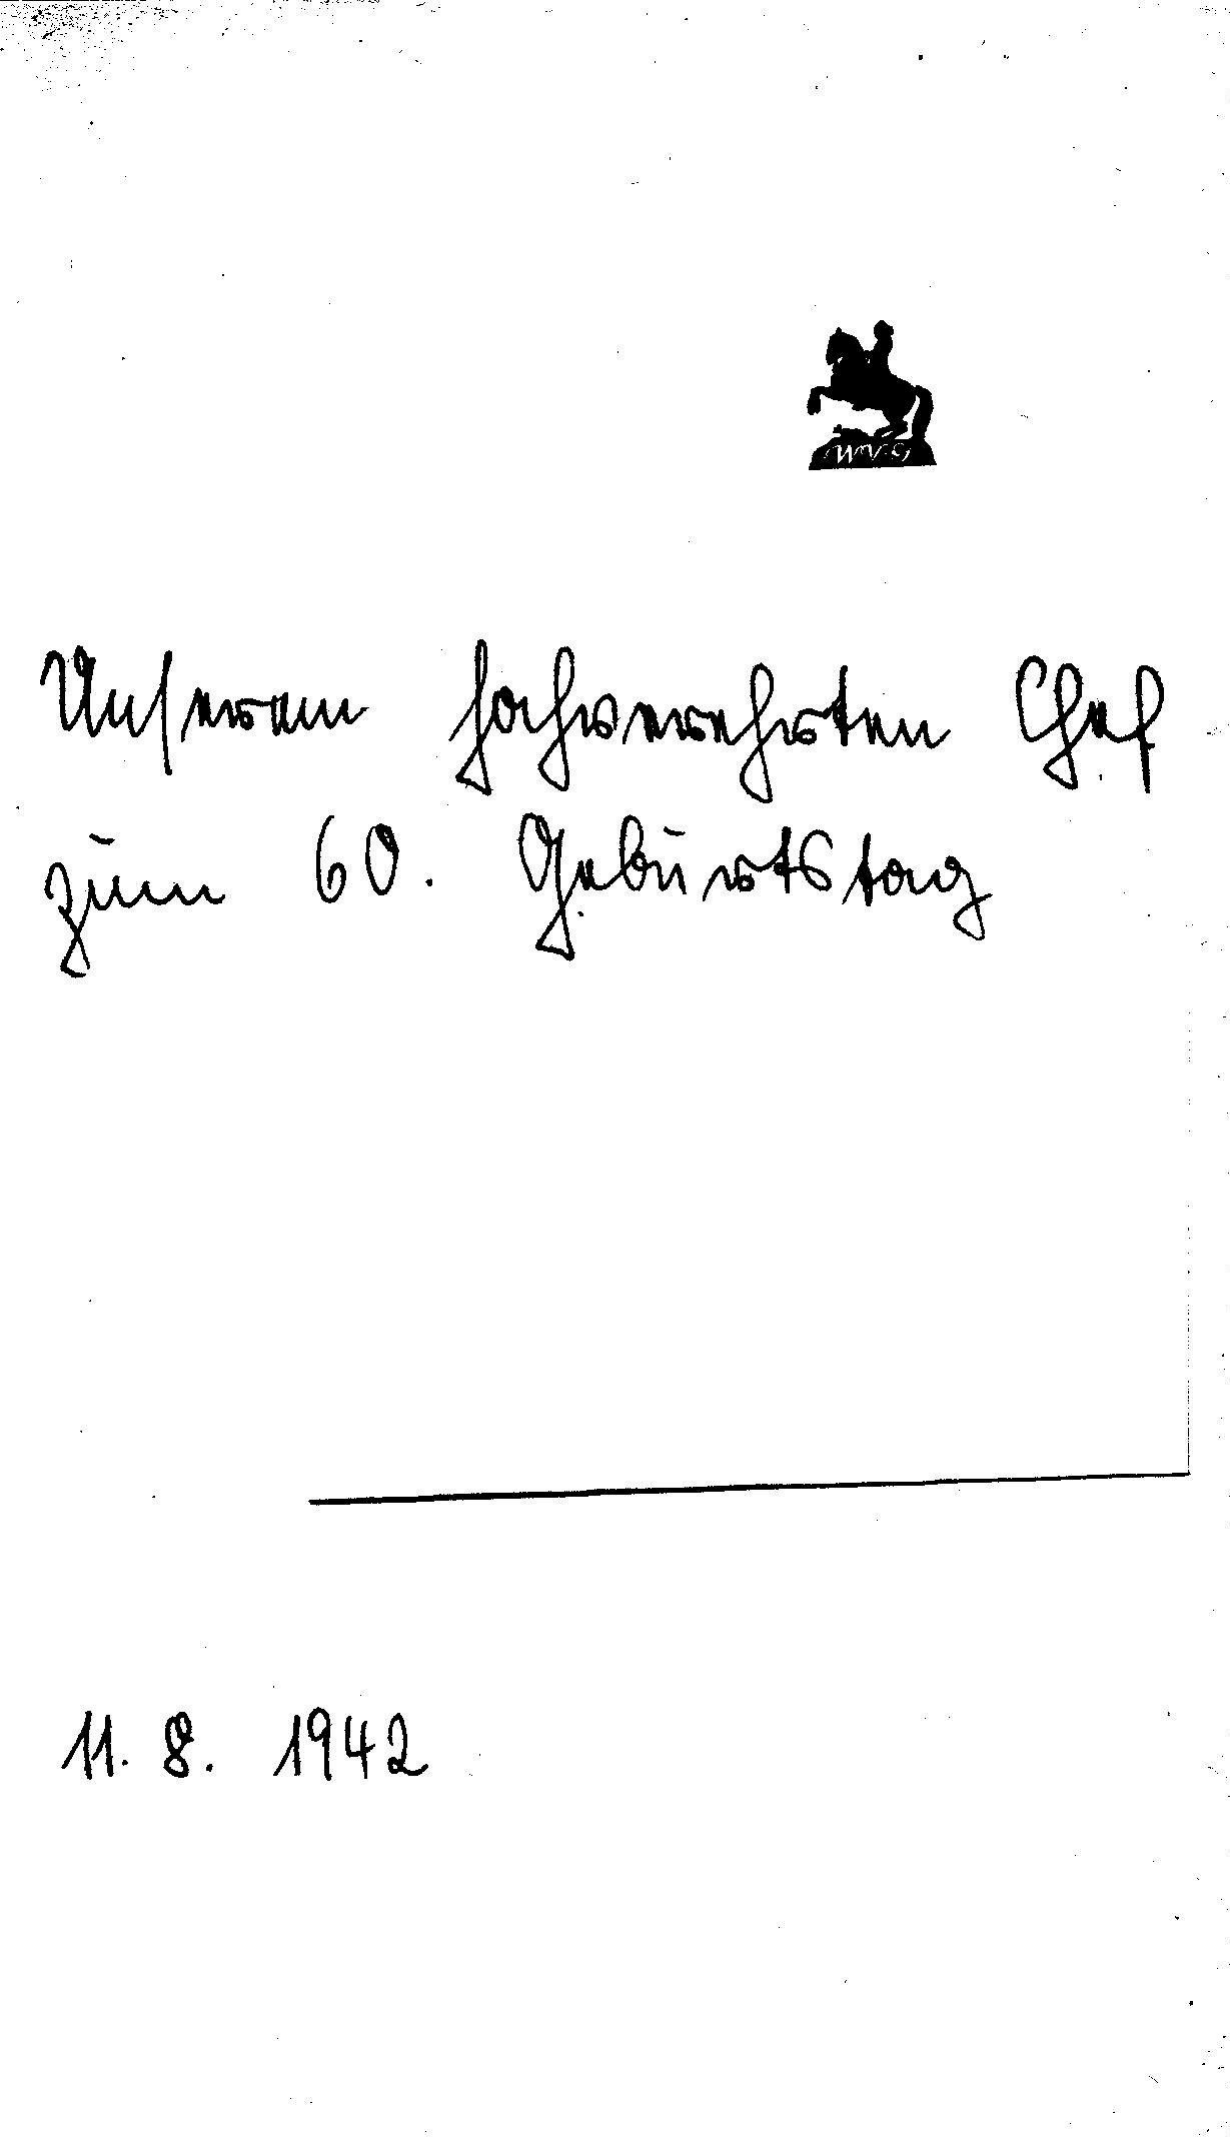 W.V.S.
Unserem hochverehrten Chef
zum 60. Geburtstag
11. 8. 1942